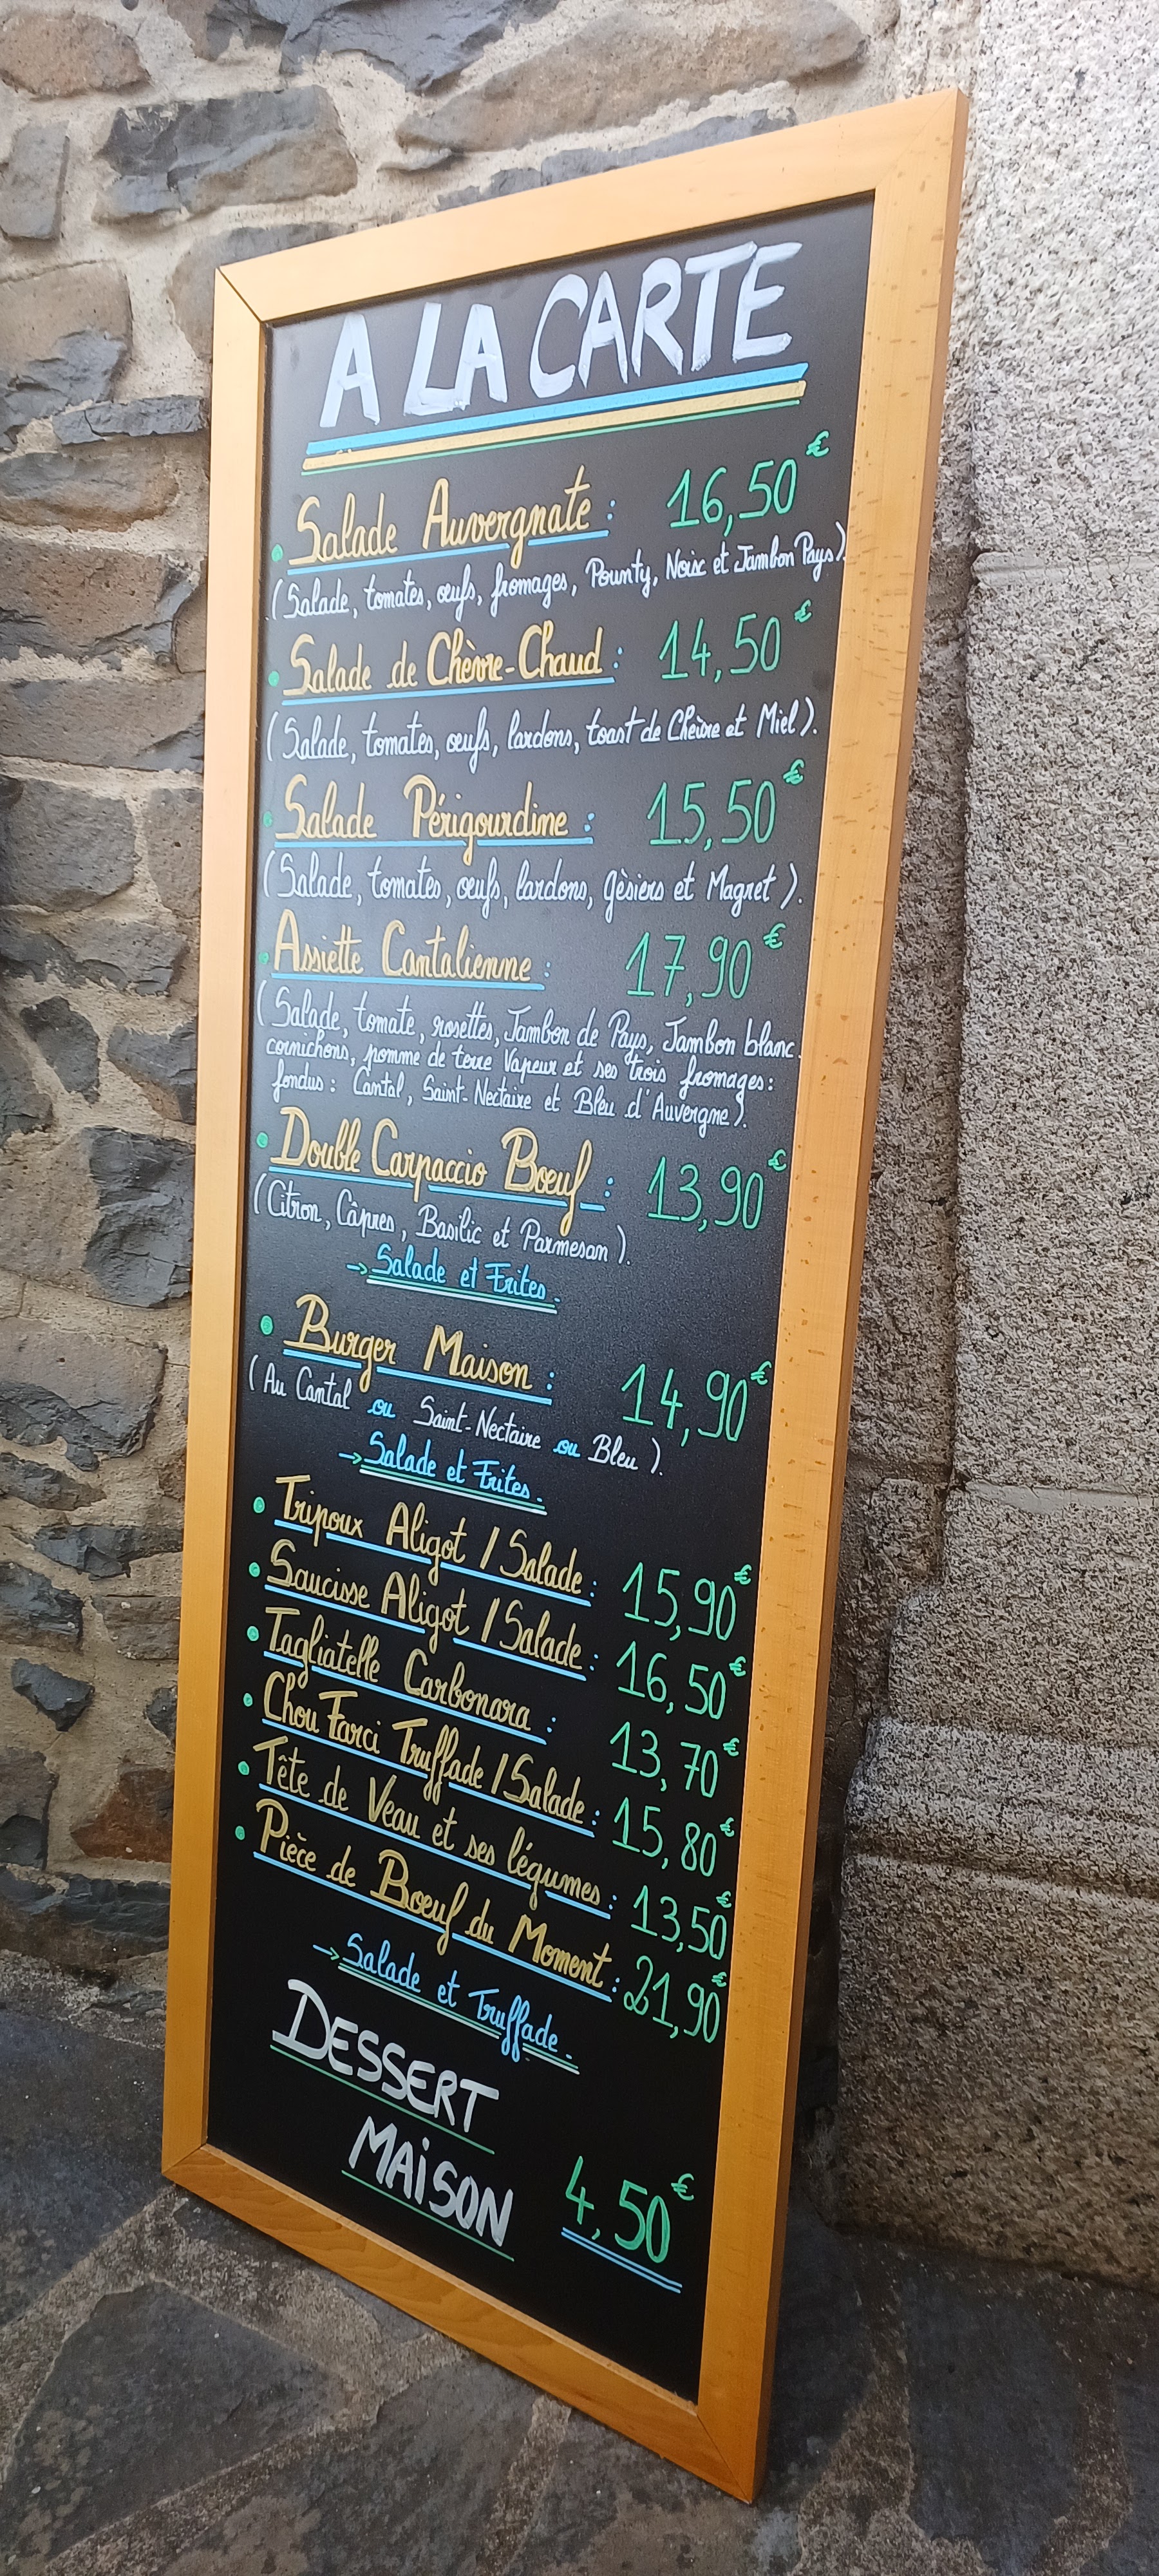 A LA CARTE
Salade Auvergnate : 16,50€
(Salade, tomates, œufs, fromages, Pounty, Noix et Jambon Pays).
Salade de Chèvre-Chaud : 14,50€
(Salade, tomates, œufs, lardons, toast de Chèvre et Miel).
Salade Périgourdine : 15,50€
(Salade, tomates, œufs, lardons, gèsiers et Magret).
Assiette Cantalienne : 17,90€
(Salade, tomate, rosettes, Jambon de Pays, Jambon blanc,
cornichons, pomme de terre Vapeur et ses trois fromages :
fondus : Cantal, Saint-Nectaire et Bleu d'Auvergne).
Double Carpaccio Bœuf : 13,90€
(Citron, Câpres, Basilic et Parmesan).
→ Salade et Frites.
Burger Maison : 14,90€
(Au Cantal ou Saint-Nectaire ou Bleu).
→ Salade et Frites.
Tripoux Aligot / Salade : 15,90€
Saucisse Aligot / Salade : 16,50€
Tagliatelle Carbonara : 13,70€
Chou Farci Truffade / Salade : 15,80€
Tête de Veau et ses légumes : 13,50€
Pièce de Bœuf du Moment : 21,90€
→ Salade et Truffade.
DESSERT
MAiSON 4,50€